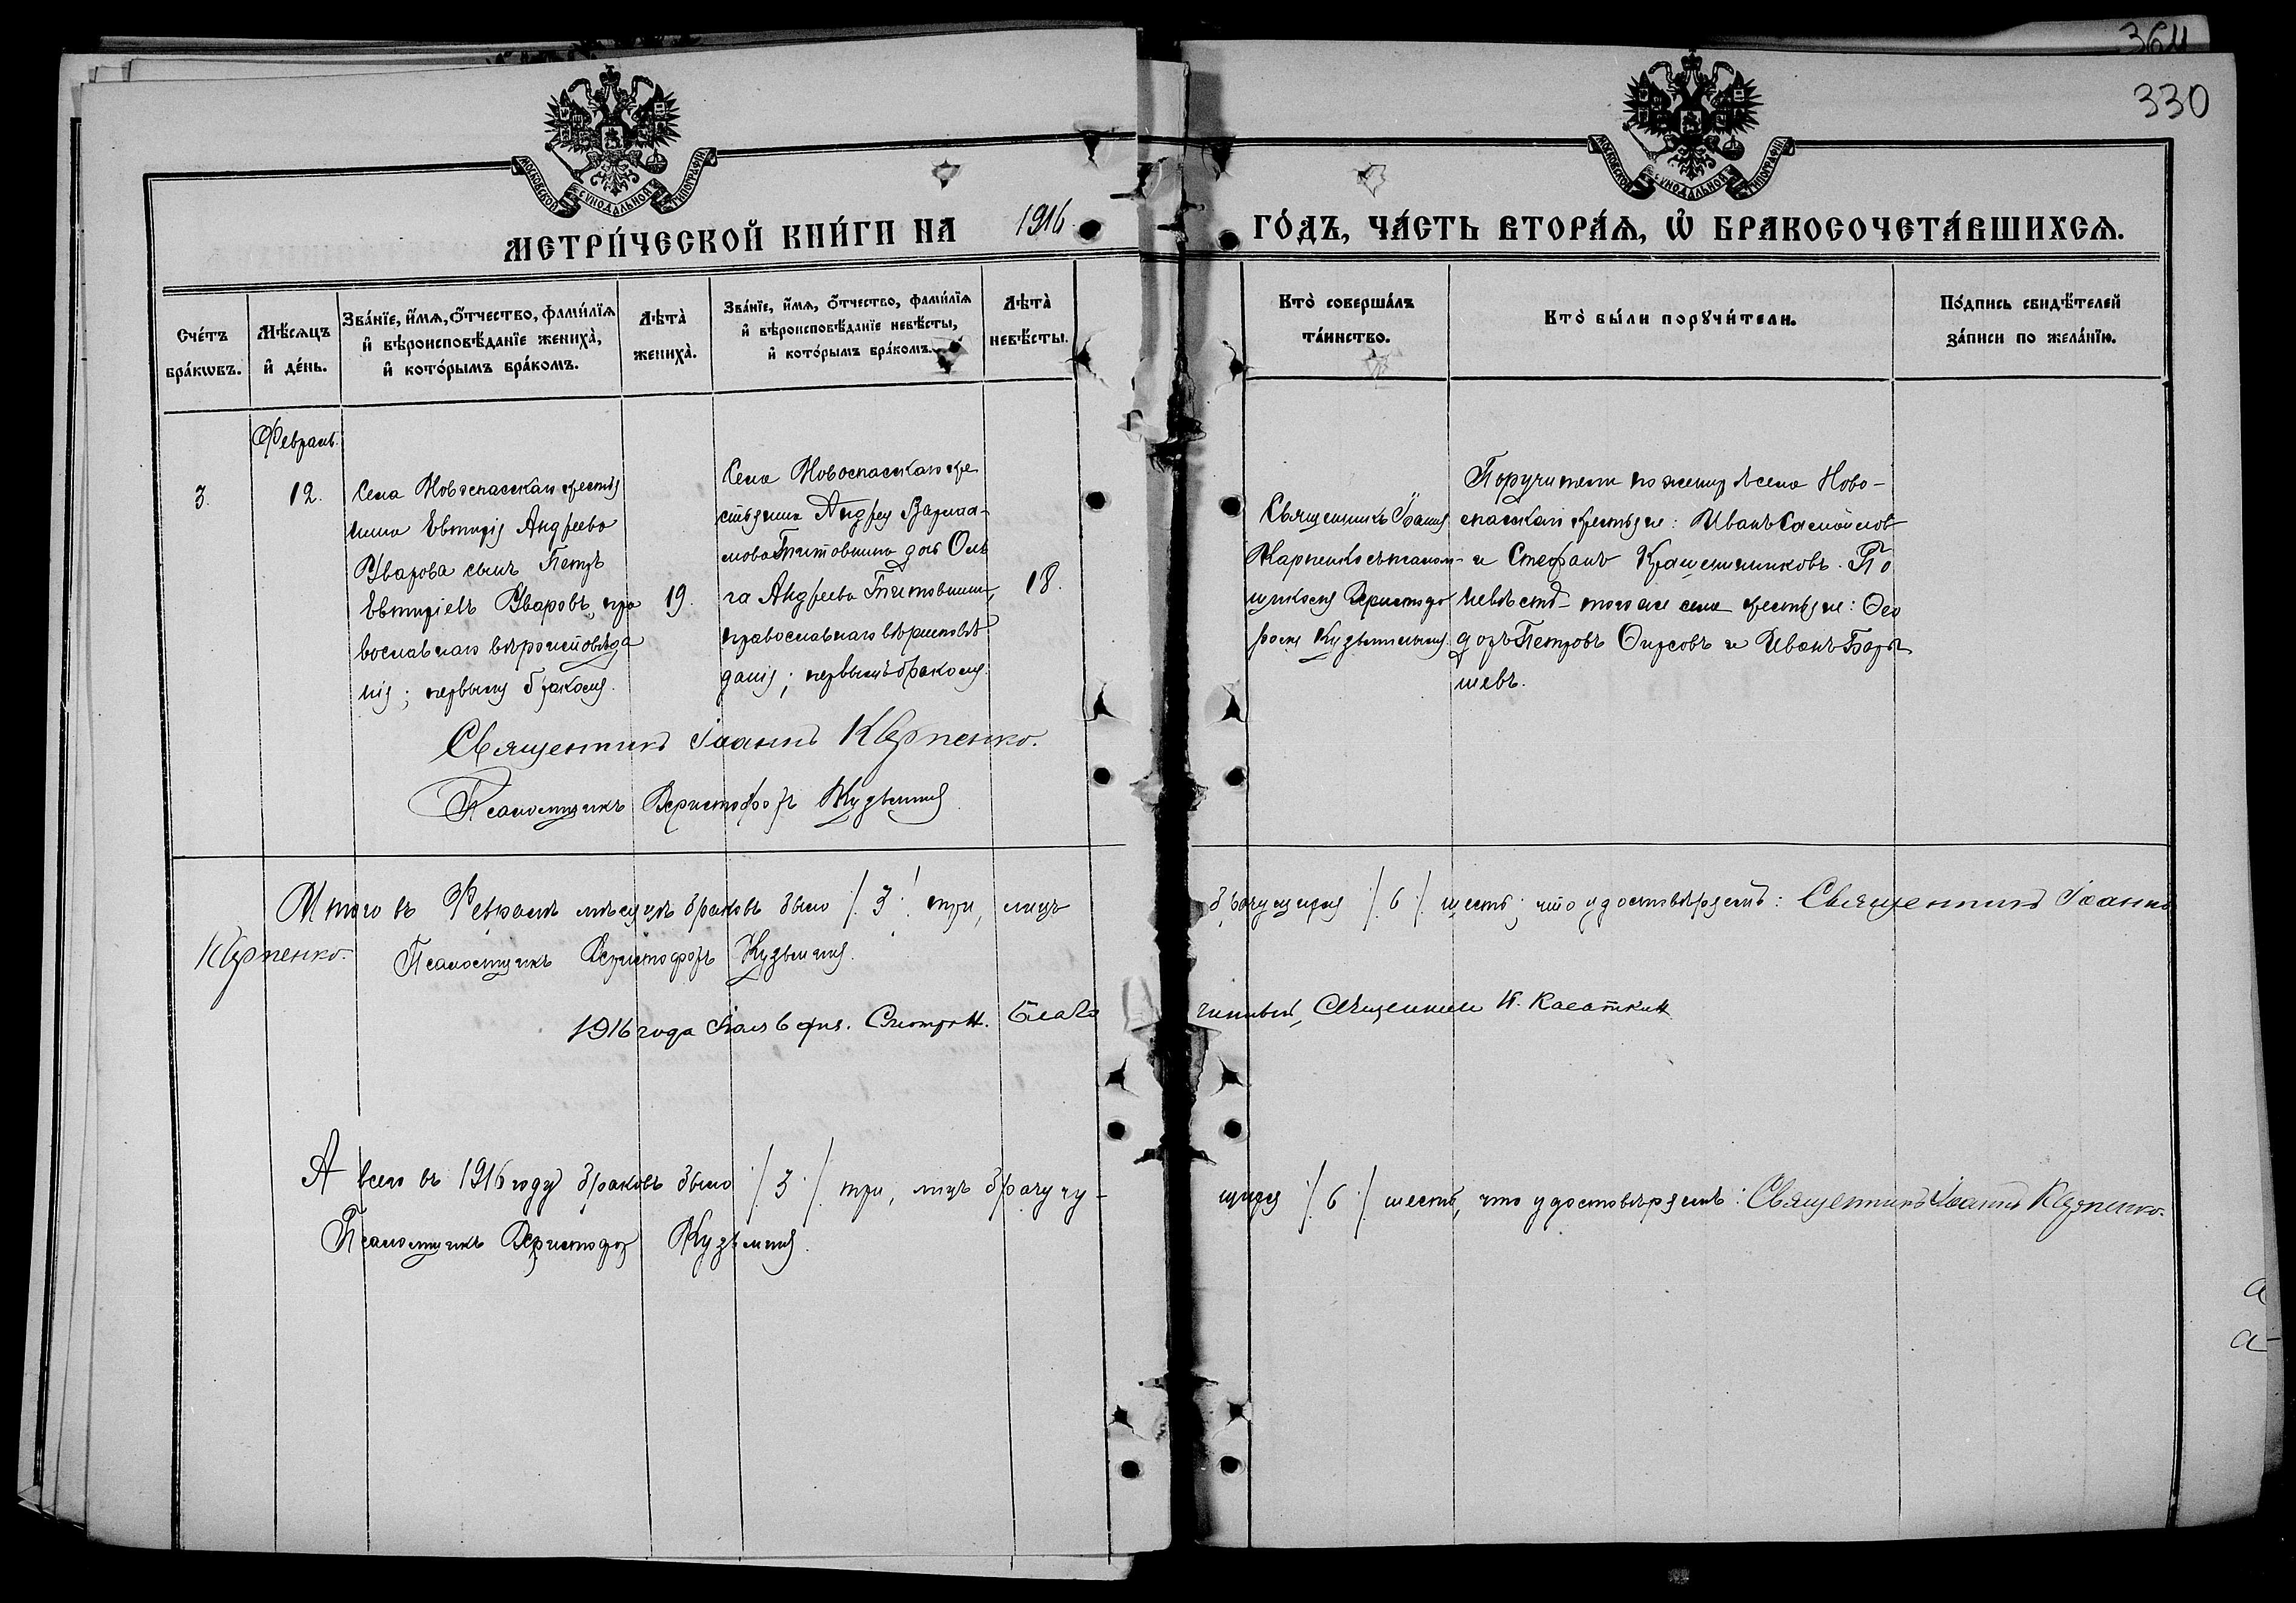 364
330
МОСКОВСКОЙ СѴНОДАЛЬНОЙ ТИПОГРАФІИ
МОСКОВСКОЙ СѴНОДАЛЬНОЙ ТИПОГРАФІИ
МЕТРИ́ЧЕСКОЙ КНИ́ГИ НА 1916 ГО́ДЪ, ЧА́СТЬ ВТОРА́Ѧ, Ѽ БРАКОСОЧЕТА́ВШИХСѦ.
Сче́тъ
бра́кѡвъ.
Мѣ́сѧцъ
и҆ де́нь.
Зва́нїе, и҆́мѧ, ѻ҆́тчество, фами́лїѧ
и҆ вѣроисповѣ́данїе жениха̀,
и҆ кото́рымъ бра́комъ.
Лѣта̀
жениха̀.
Зва́нїе, и҆́мѧ, ѻ҆́тчество, фами́лїѧ
и҆ вѣроисповѣ́данїе невѣ́сты,
и҆ кото́рымъ бра́комъ.
Лѣта̀
невѣ́сты.
Кто̀ соверша́лъ
та́инство.
Кто̀ бы́ли порꙋчи́тели.
По́дпись свидѣ́телей
за́писи по жела́нїю.
Февраль.
3.
12.
Села Новоспасскаго крестья
нина Евтихія Андреева
Уварова сынъ Петръ
Евтихіевъ Уваровъ, пра
вославнаго вѣроисповѣда
нія; первымъ бракомъ.
19.
Села Новоспасскаго кре
стьянина Андрея Варлаа-
мова дочь Оль
га Андреева
православнаго вѣроисповѣ
данія; первымъ бракомъ.
18.
Священникъ Іоаннъ
Карпенко съ псалом-
щикомъ Христофо
ромъ Кузьминымъ.
Поручители по женихѣ села Ново-
спасскаго крестьяне: Иванъ Самойловъ
и Стефанъ Крашенинниковъ. По
невѣстѣ — того же села крестьяне: Ѳео
доръ Петровъ Ѳирсовъ и Иванъ Бары
шевъ.
Священникъ Іоаннъ Карпенко.
Псаломщикъ Христофоръ Кузьминъ
Итого въ Февралѣ мѣсяцѣ браковъ было /3/ три, лицъ брачущихся /6/ шесть; что удостовѣряемъ: Священникъ Іоаннъ
Карпенко. Псаломщикъ Христофоръ Кузьминъ.
1916 года Мая 6 дня. Смотрѣлъ. Благочинный, Священникъ И. Касаткинъ
А всего въ 1916 году браковъ было /3/ три, лицъ брачую-
щихся /6/ шесть, что удостовѣряемъ: Священникъ Іоаннъ Карпенко.
Псаломщикъ Христофоръ Кузьминъ.
а
а-